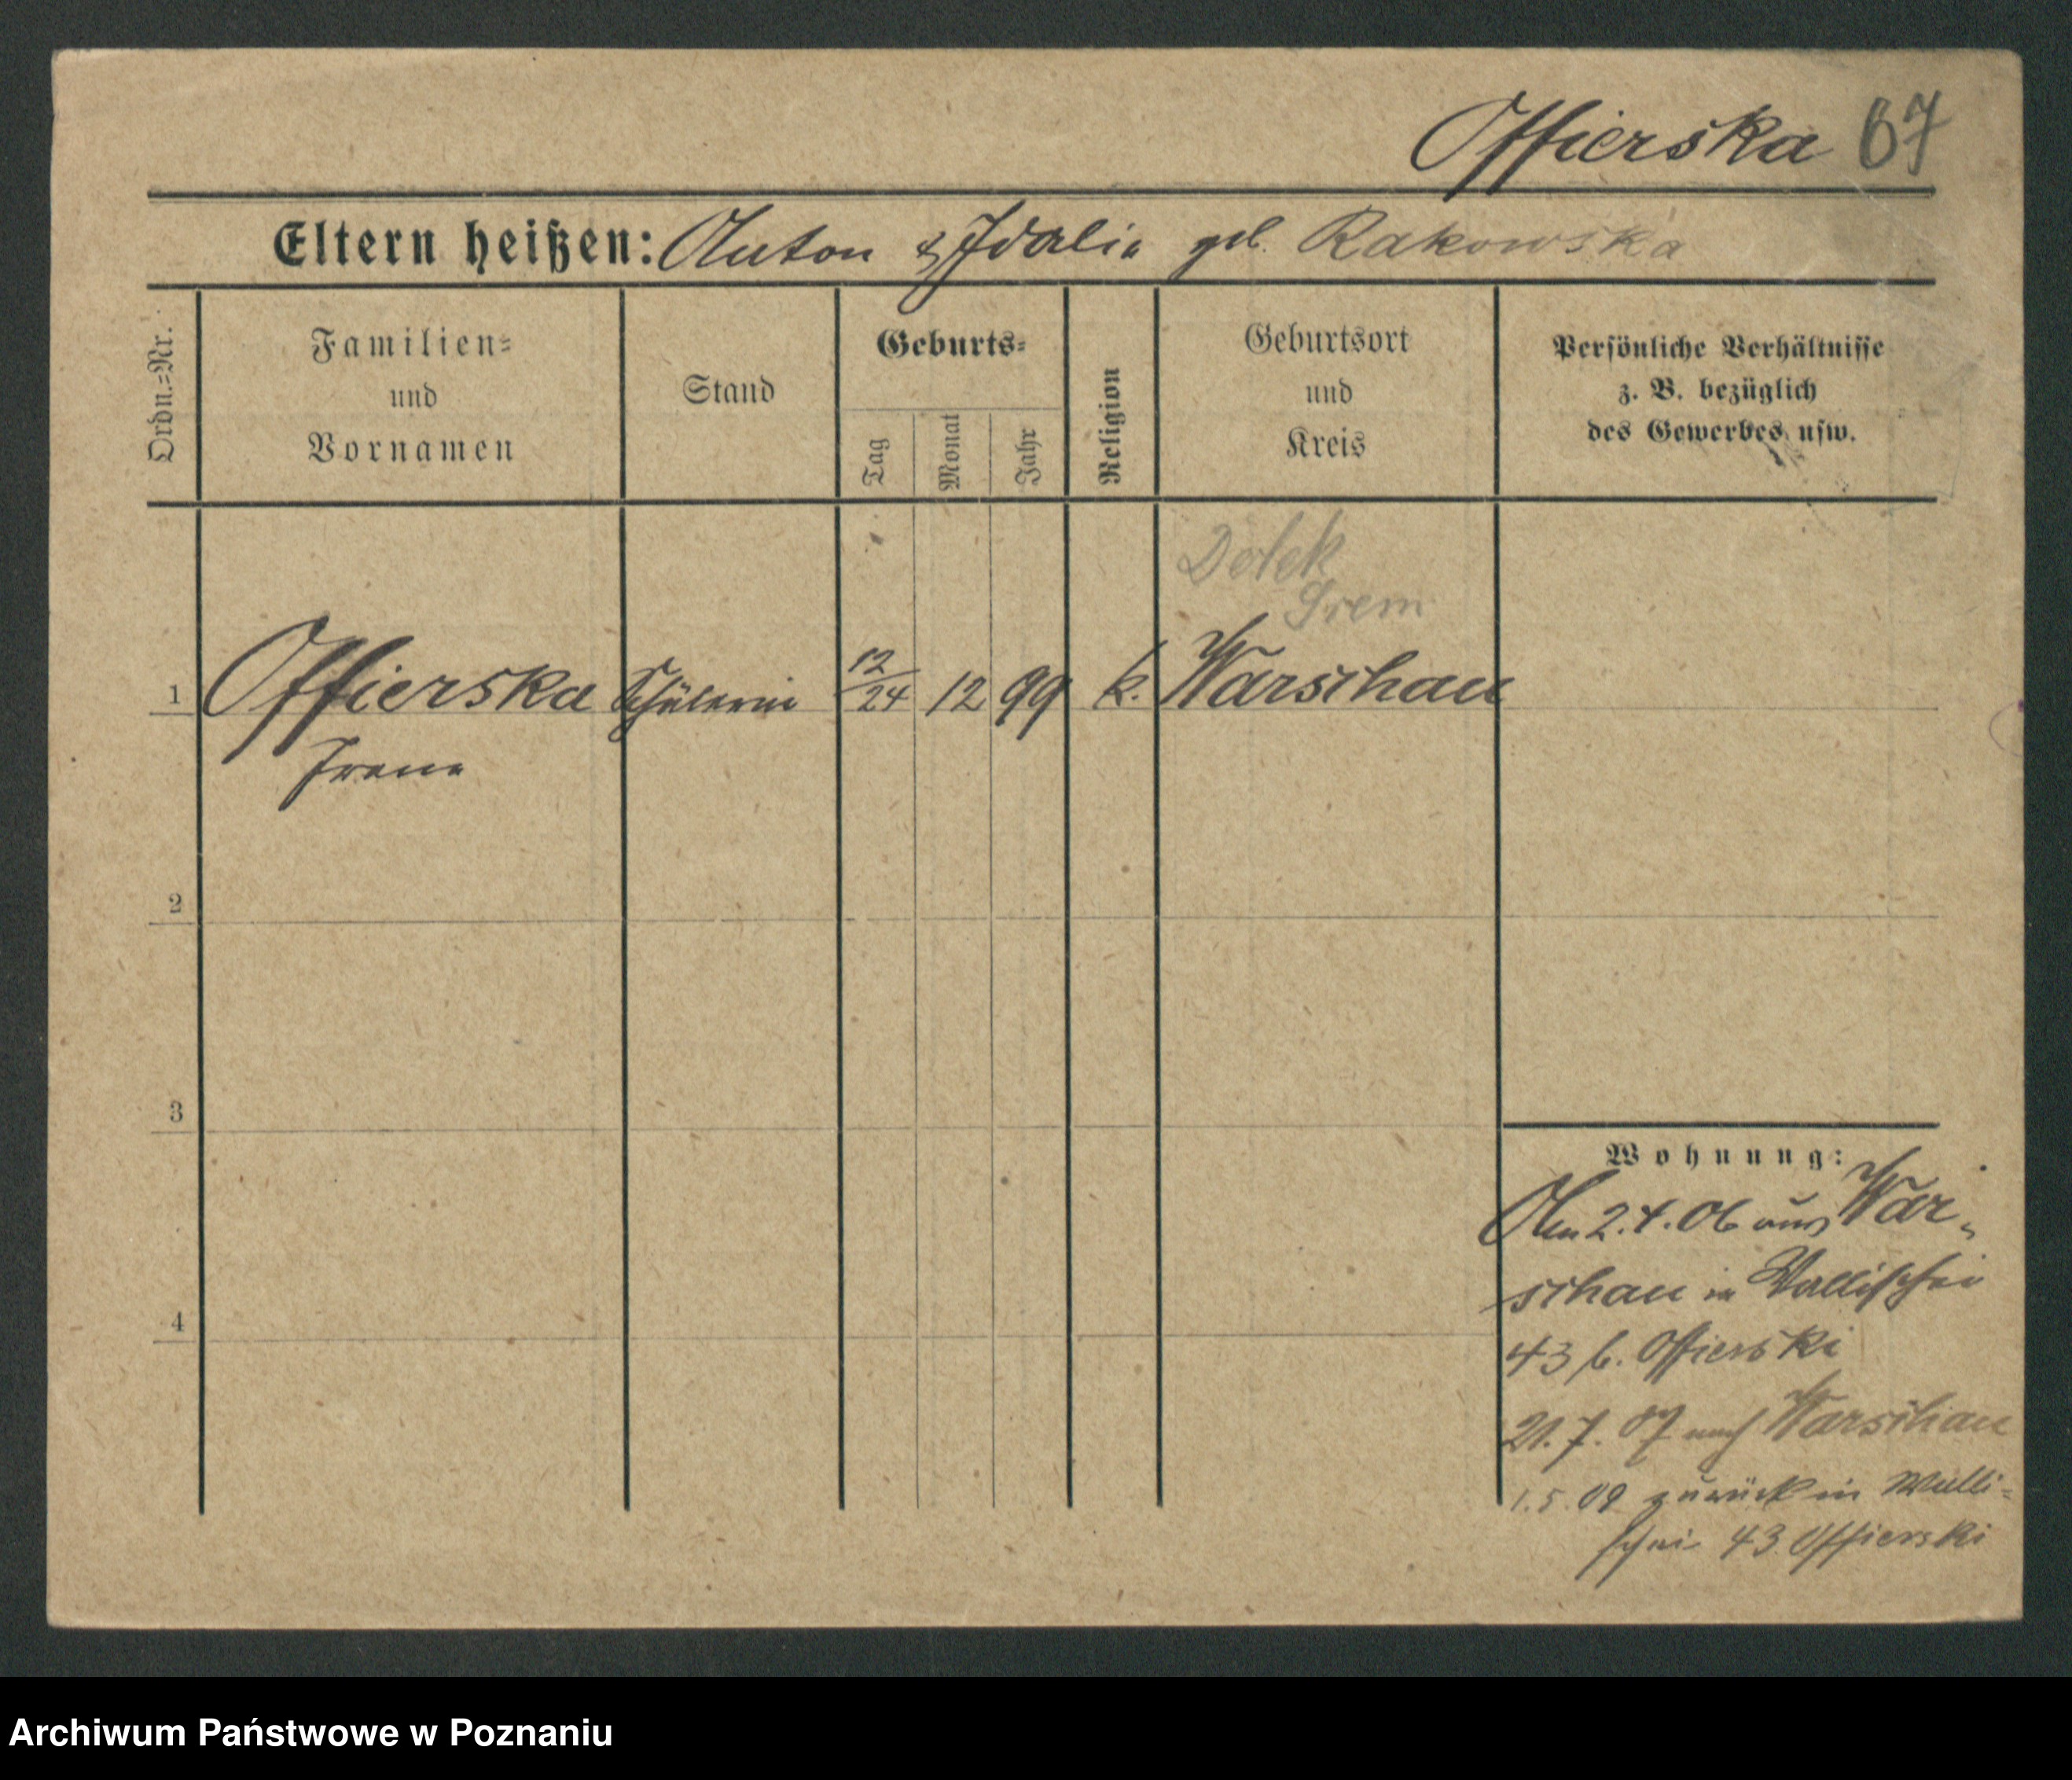 Offierska 67
Eltern heißen: Anton & Idalia geb. Rakowska
Ordn.=Nr.
Familien=
und
Vornamen
Stand
Geburts=
Tag
Monat
Jahr
Religion
Geburtsort
und
Kreis
Persönliche Verhältnisse
z. B. bezüglich
des Gewerbes usw.
Dolek
Srem
1 Offierska Schülerin 12/24 12 99 k. Warschau
Irena
2
3
4
Wohnung:
Am 2.4.06 aus War-
schau in Wallischei
43 b. Offierski
21.7.07 nach Warschau
1.5.09 zurück in Walli=
schei 43 Offierski
Archiwum Państwowe w Poznaniu